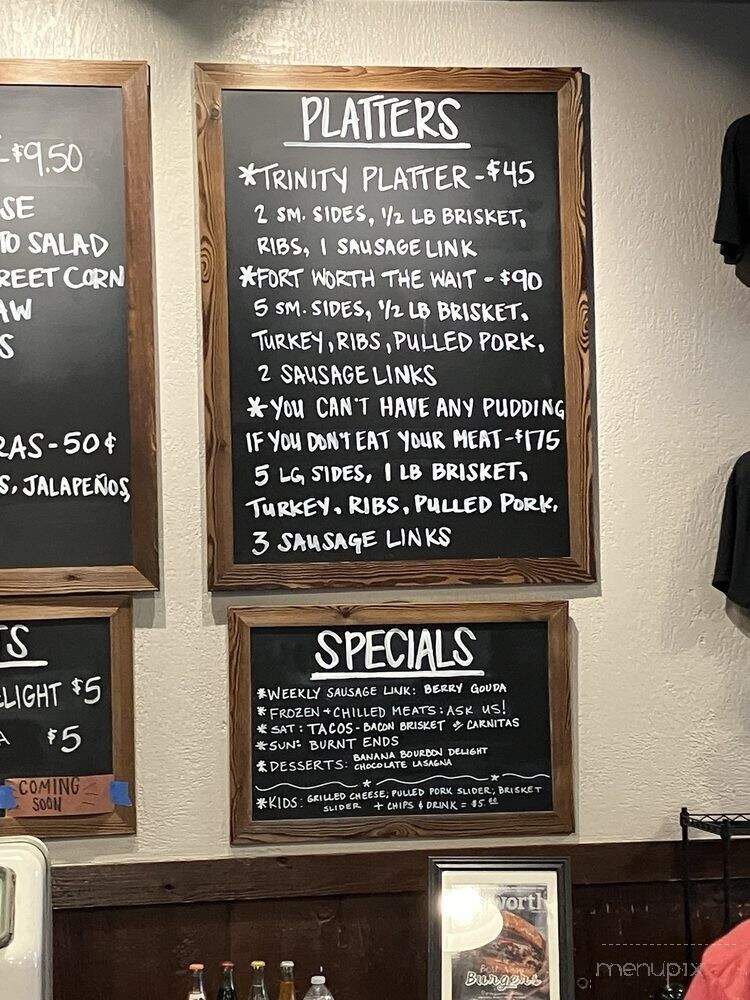 $9.50
SE
TO SALAD
REET CORN
AW
S
RAS-50¢
S, JALAPEÑOS,
TS
ELIGHT $5
A $5
COMING
SOON
PLATTERS
*TRINITY PLATTER-$45
2 SM. SIDES, 1/2 LB BRISKET,
RIBS, 1 SAUSAGE LINK
*FORT WORTH THE WAIT-$90
5 SM. SIDES, 1/2 LB BRISKET,
TURKEY, RIBS, PULLED PORK,
2 SAUSAGE LINKS
*YOU CAN'T HAVE ANY PUDDING
IF YOU DON'T EAT YOUR MEAT-$175
5 LG SIDES, 1 LB BRISKET,
TURKEY, RIBS, PULLED PORK,
3 SAUSAGE LINKS
SPECIALS
*WEEKLY SAUSAGE LINK: BERRY GOUDA
*FROZEN + CHILLED MEATS: ASK US!
*SAT: TACOS-BACON BRISKET & CARNITAS
*SUN: BURNT ENDS
*DESSERTS: BANANA BOURBON DELIGHT
CHOCOLATE LASAGNA
*KIDS: GRILLED CHEESE, PULLED PORK SLIDER, BRISKET
SLIDER + CHIPS & DRINK = $5.00
worth
Burgers
menupix